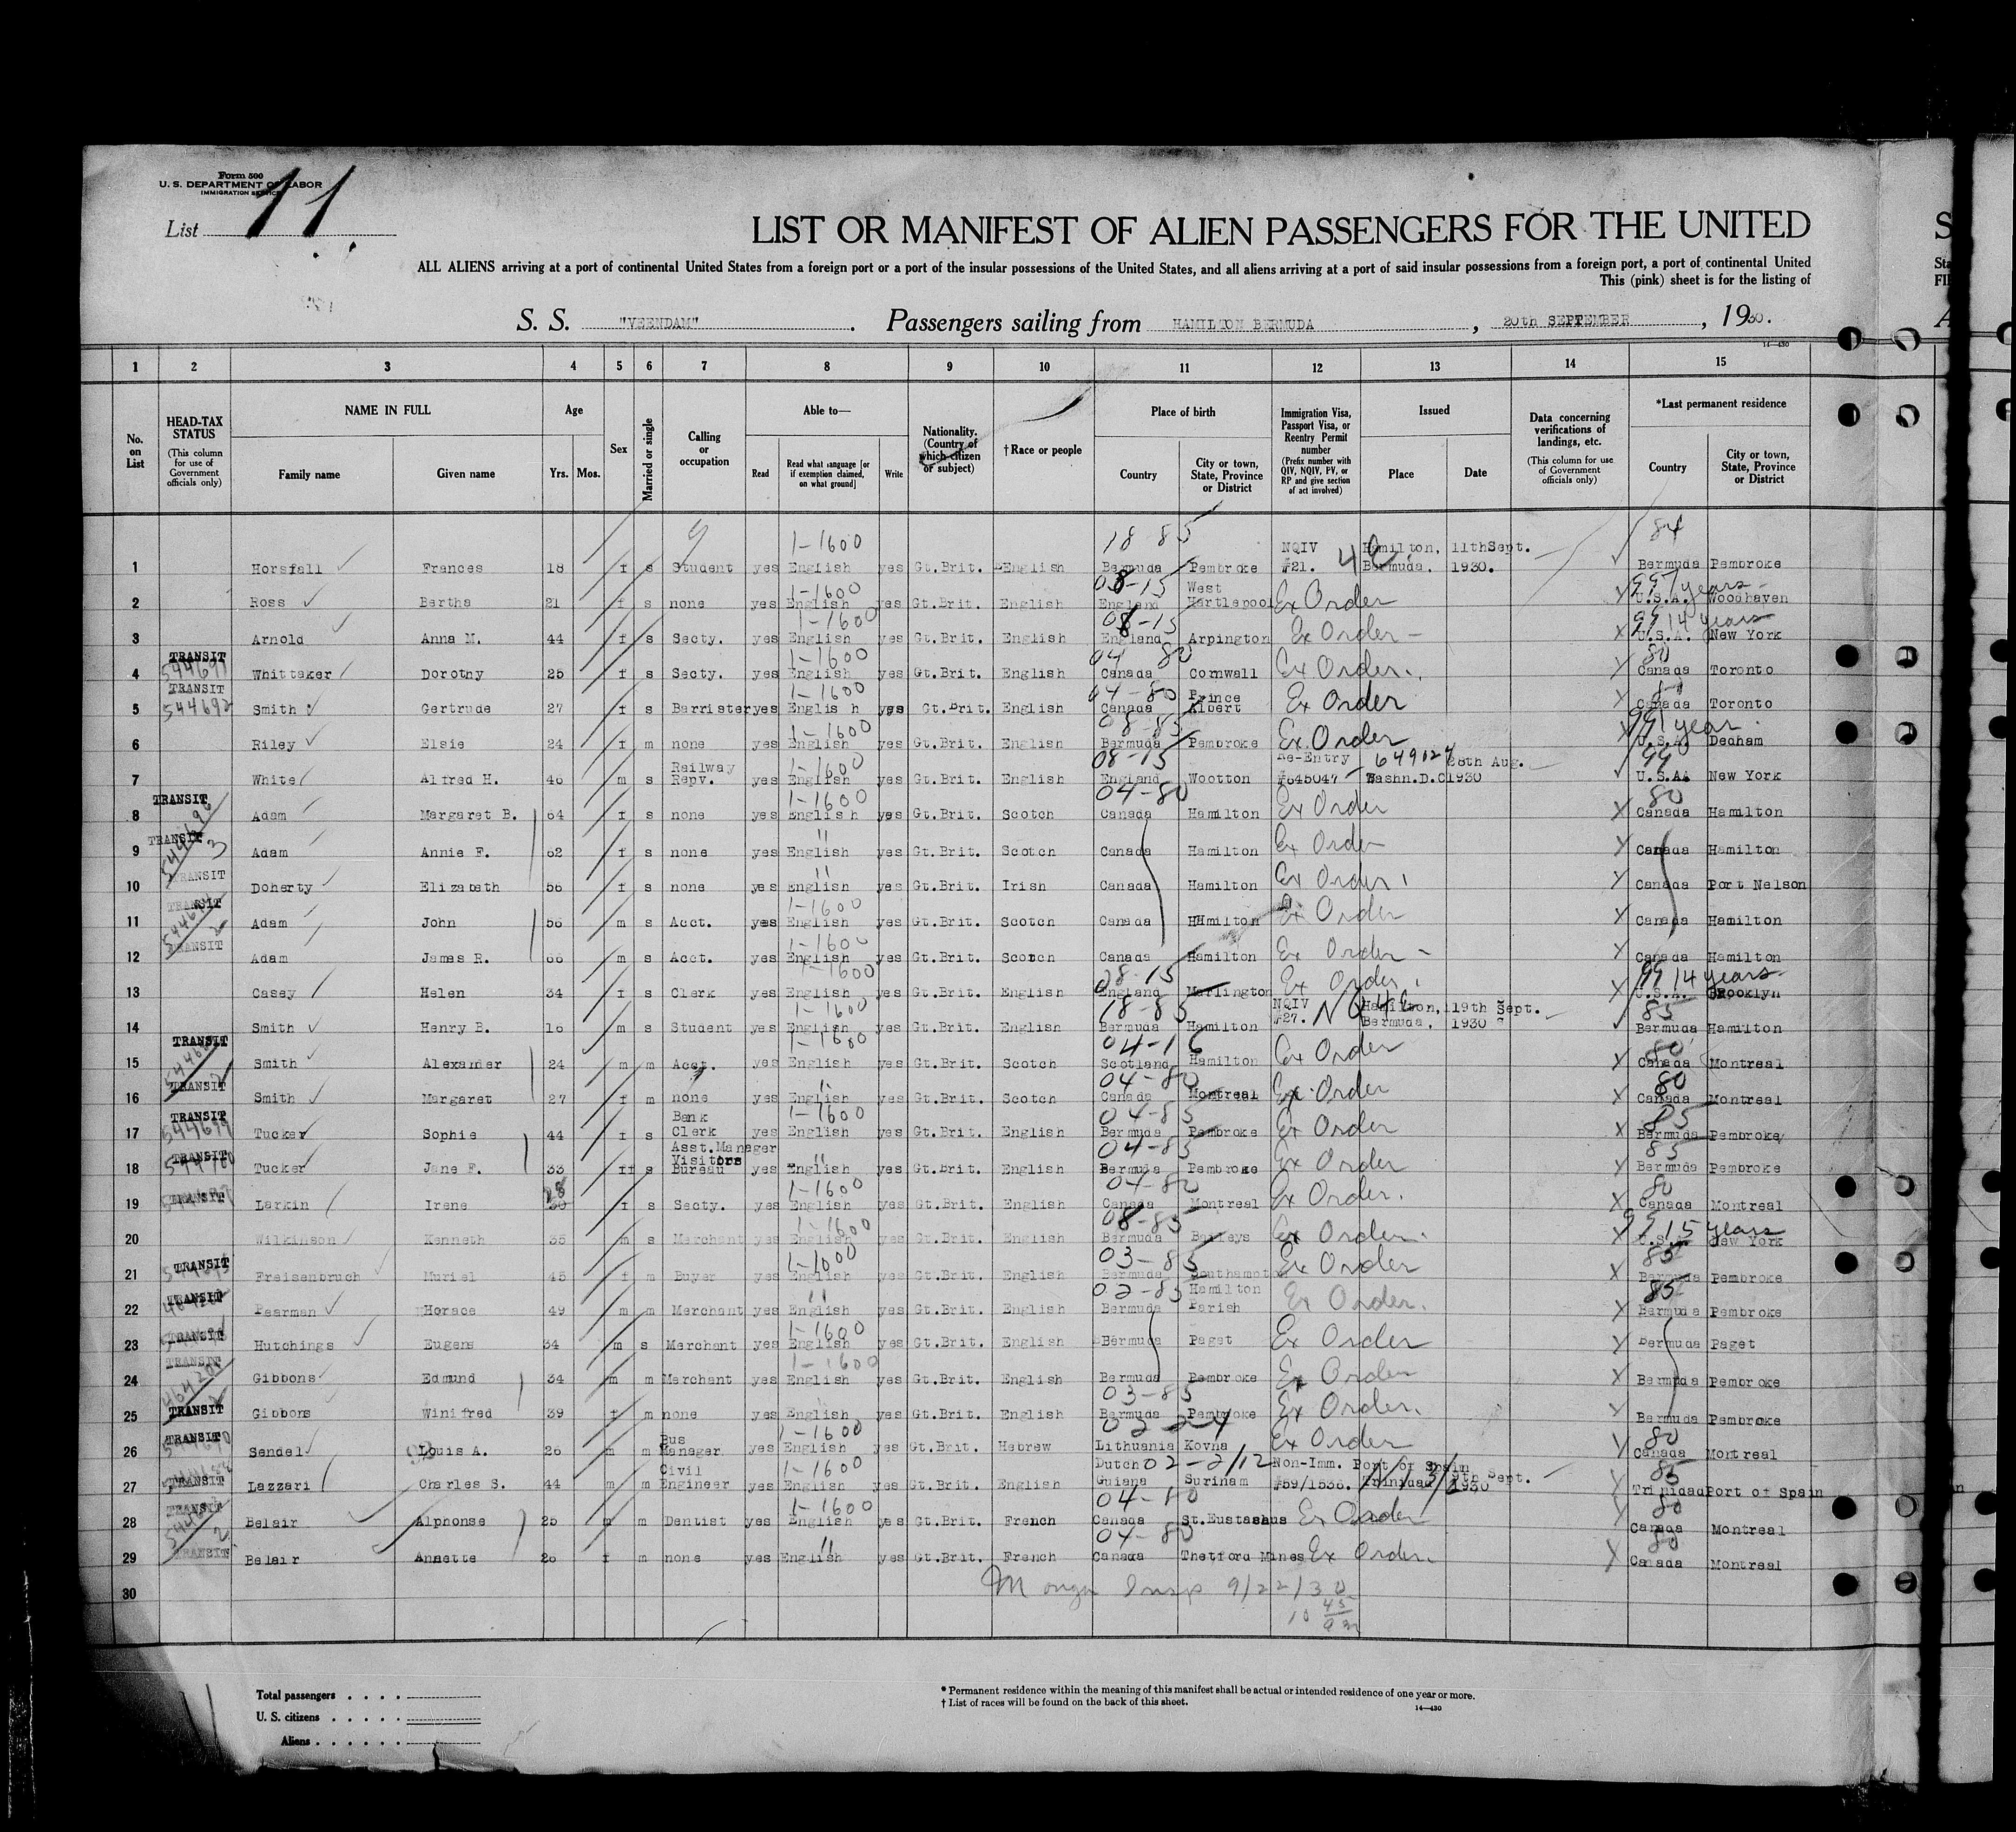 Form 500
U. S. DEPARTMENT OF LABOR
IMMIGRATION SERVICE
List 11
LIST OR MANIFEST OF ALIEN PASSENGERS FOR THE UNITED
ALL ALIENS arriving at a port of continental United States from a foreign port or a port of the insular possessions of the United States, and all aliens arriving at a port of said insular possessions from a foreign port, a port of continental United
This (pink) sheet is for the listing of
S. S. "VEENDAM". Passengers sailing from HAMILTON BERMUDA, 20th SEPTEMBER, 1930.
14—430
1 2 3 4 5 6 7 8 9 10 11 12 13 14 15
No. on List
HEAD-TAX STATUS (This column for use of Government officials only)
NAME IN FULL Family name Given name
Age Yrs. Mos.
Sex
Married or single
Calling or occupation
Able to— Read Read what language [or if exemption claimed, on what ground] Write
Nationality. (Country of which citizen or subject)
†Race or people
Place of birth Country City or town, State, Province or District
Immigration Visa, Passport Visa, or Reentry Permit number (Prefix number with QIV, NQIV, PV, or RP and give section of act involved)
Issued Place Date
Data concerning verifications of landings, etc. (This column for use of Government officials only)
*Last permanent residence Country City or town, State, Province or District
1 Horsfall Frances 18 f s Student yes English 1-1600 yes Gt.Brit. English 18-85 Bermuda Pembroke NQIV #21. Hamilton, Bermuda. 11thSept. 1930. 84 Bermuda Pembroke
2 Ross Bertha 21 f s none yes English 1-1600 yes Gt.Brit. English 08-15 England West Hartlepool Ex Order U.S.A. Woodhaven
3 Arnold Anna M. 44 f s Secty. yes English 1-1600 yes Gt.Brit. English 08-15 England Arpington Ex Order 99 14 years U.S.A. New York
4 TRANSIT 544691 Whittaker Dorothy 25 f s Secty. yes English 1-1600 yes Gt.Brit. English 04 80 Canada Cornwall Ex Order. 80 Canada Toronto
5 TRANSIT 544692 Smith Gertrude 27 f s Barrister yes English 1-1600 yes Gt.Brit. English 04-80 Canada Prince Albert Ex Order Canada Toronto
6 Riley Elsie 24 f m none yes English 1-1600 yes Gt.Brit. English 08-85 Bermuda Pembroke Ex Order 99 1 year U.S.A. Dedham
7 White Alfred H. 46 m s Railway Repv. yes English 1-1600 yes Gt.Brit. English 08-15 England Wootton Re-Entry #645047 Washn.D.C 28th Aug. 1930 99 U.S.A. New York
8 TRANSIT Adam Margaret B. 64 f s none yes English 1-1600 yes Gt.Brit. Scotch 04-80 Canada Hamilton Ex Order 80 Canada Hamilton
9 TRANSIT Adam Annie F. 62 f s none yes English " yes Gt.Brit. Scotch Canada Hamilton Ex Order Canada Hamilton
10 TRANSIT Doherty Elizabeth 56 f s none yes English " yes Gt.Brit. Irish Canada Hamilton Ex Order Canada Port Nelson
11 TRANSIT Adam John 56 m s Acct. yes English 1-1600 yes Gt.Brit. Scotch Canada Hamilton Ex Order Canada Hamilton
12 TRANSIT Adam James R. m s Acct. yes English 1-1600 yes Gt.Brit. Scotch Canada Hamilton Ex Order Canada Hamilton
13 Casey Helen 34 f s Clerk yes English 1-1600 yes Gt.Brit. English 08-15 England Marlington Ex Order 99 14 years U.S.A. Brooklyn
14 Smith Henry B. 16 m s Student yes English 1-1600 yes Gt.Brit. English 18-85 Bermuda Hamilton NQIV #27. Hamilton, Bermuda, 19th Sept. 1930 85 Bermuda Hamilton
15 TRANSIT Smith Alexander 24 m m Acct. yes English 1-1600 yes Gt.Brit. Scotch 04-16 Scotland Hamilton Ex Order 80 Canada Montreal
16 TRANSIT Smith Margaret 27 f m none yes English " yes Gt.Brit. Scotch 04-80 Canada Montreal Ex Order 80 Canada Montreal
17 TRANSIT Tucker Sophie 44 f s Bank Clerk yes English 1-1600 yes Gt.Brit. English 04-85 Bermuda Pembroke Ex Order 85 Bermuda Pembroke
18 TRANSIT Tucker Jane F. 33 f s Asst.Manager Visitors Bureau yes English " yes Gt.Brit. English 04-85 Bermuda Pembroke Ex Order 85 Bermuda Pembroke
19 TRANSIT Larkin Irene 28 f s Secty. yes English 1-1600 yes Gt.Brit. English 04-80 Canada Montreal Ex Order. 80 Canada Montreal
20 Wilkinson Kenneth 35 m s Merchant yes English 1-1600 yes Gt.Brit. English 08-85 Bermuda Baileys Ex Order. 99 15 years U.S.A. New York
21 TRANSIT Freisenbruch Muriel 45 f m Buyer yes English 1-1600 yes Gt.Brit. English 03-85 Bermuda Southampton Ex Order 85 Bermuda Pembroke
22 TRANSIT Pearman Horace 49 m m Merchant yes English " yes Gt.Brit. English 02-85 Bermuda Hamilton Parish Ex Order. 85 Bermuda Pembroke
23 TRANSIT Hutchings Eugene 34 m s Merchant yes English 1-1600 yes Gt.Brit. English Bermuda Paget Ex Order Bermuda Paget
24 TRANSIT Gibbons Edmund 34 m m Merchant yes English 1-1600 yes Gt.Brit. English Bermuda Pembroke Ex Order Bermuda Pembroke
25 TRANSIT Gibbons Winifred 39 f m none yes English yes Gt.Brit. English 03-85 Bermuda Pembroke Ex Order. Bermuda Pembroke
26 TRANSIT Sendel Louis A. 26 m m Bus Manager yes English 1-1600 yes Gt.Brit. Hebrew 02-24 Lithuania Kovna Ex Order 80 Canada Montreal
27 TRANSIT Lazzari Charles S. 44 m m Civil Engineer yes English 1-1600 yes Gt.Brit. English Dutch Guiana Surinam Non-Imm. #59/1536. Port of Spain Trinidad 9th Sept. 1930 85 Trinidad Port of Spain
28 TRANSIT Belair Alphonse 25 m m Dentist yes English 1-1600 yes Gt.Brit. French Canada St.Eustashus Ex Order 80 Canada Montreal
29 TRANSIT Belair Annette 26 f m none yes English " yes Gt.Brit. French 04-80 Canada Thetford Mines Ex Order. 80 Canada Montreal
30 Insp 9/22/30
10 45
Total passengers
U. S. citizens
Aliens
* Permanent residence within the meaning of this manifest shall be actual or intended residence of one year or more.
† List of races will be found on the back of this sheet.
14—430